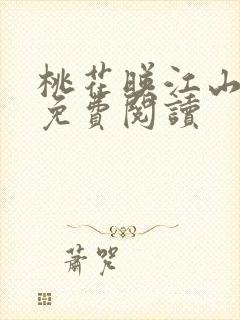 桃花映江山
免費閱讀
蕭咒